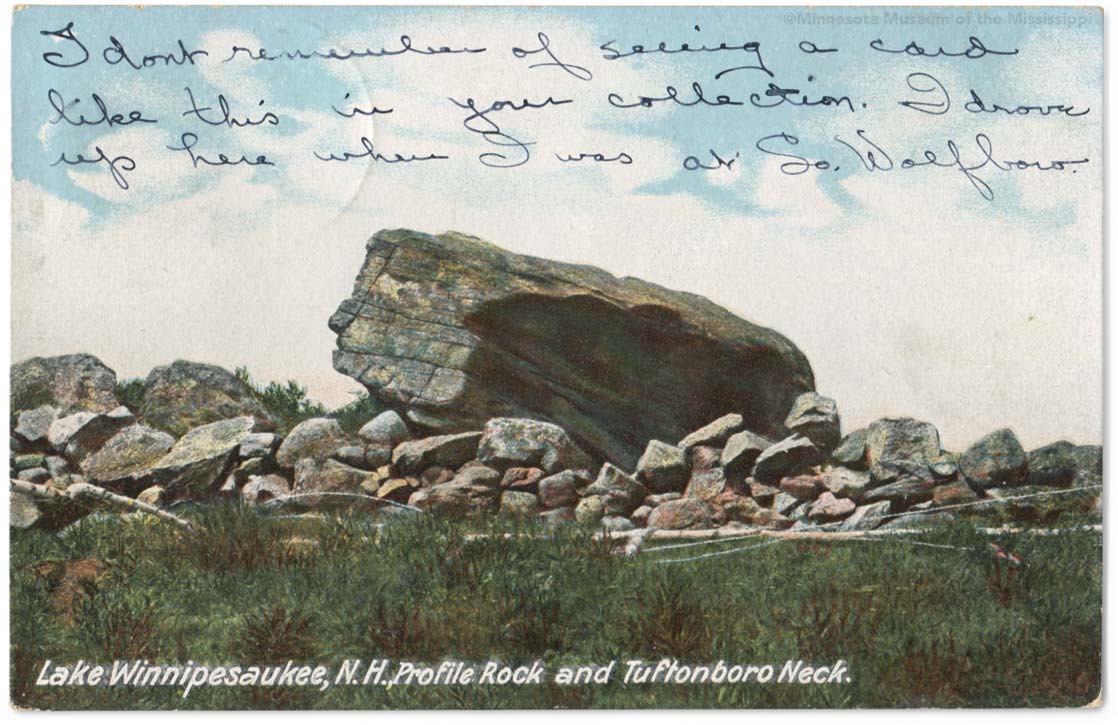 ©Minnesota Museum of the Mississippi
I dont remember of seeing a card
like this in your collection. I drove
up here when I was at So. Wolfboro.
Lake Winnipesaukee, N. H., Profile Rock and Tuftonboro Neck.